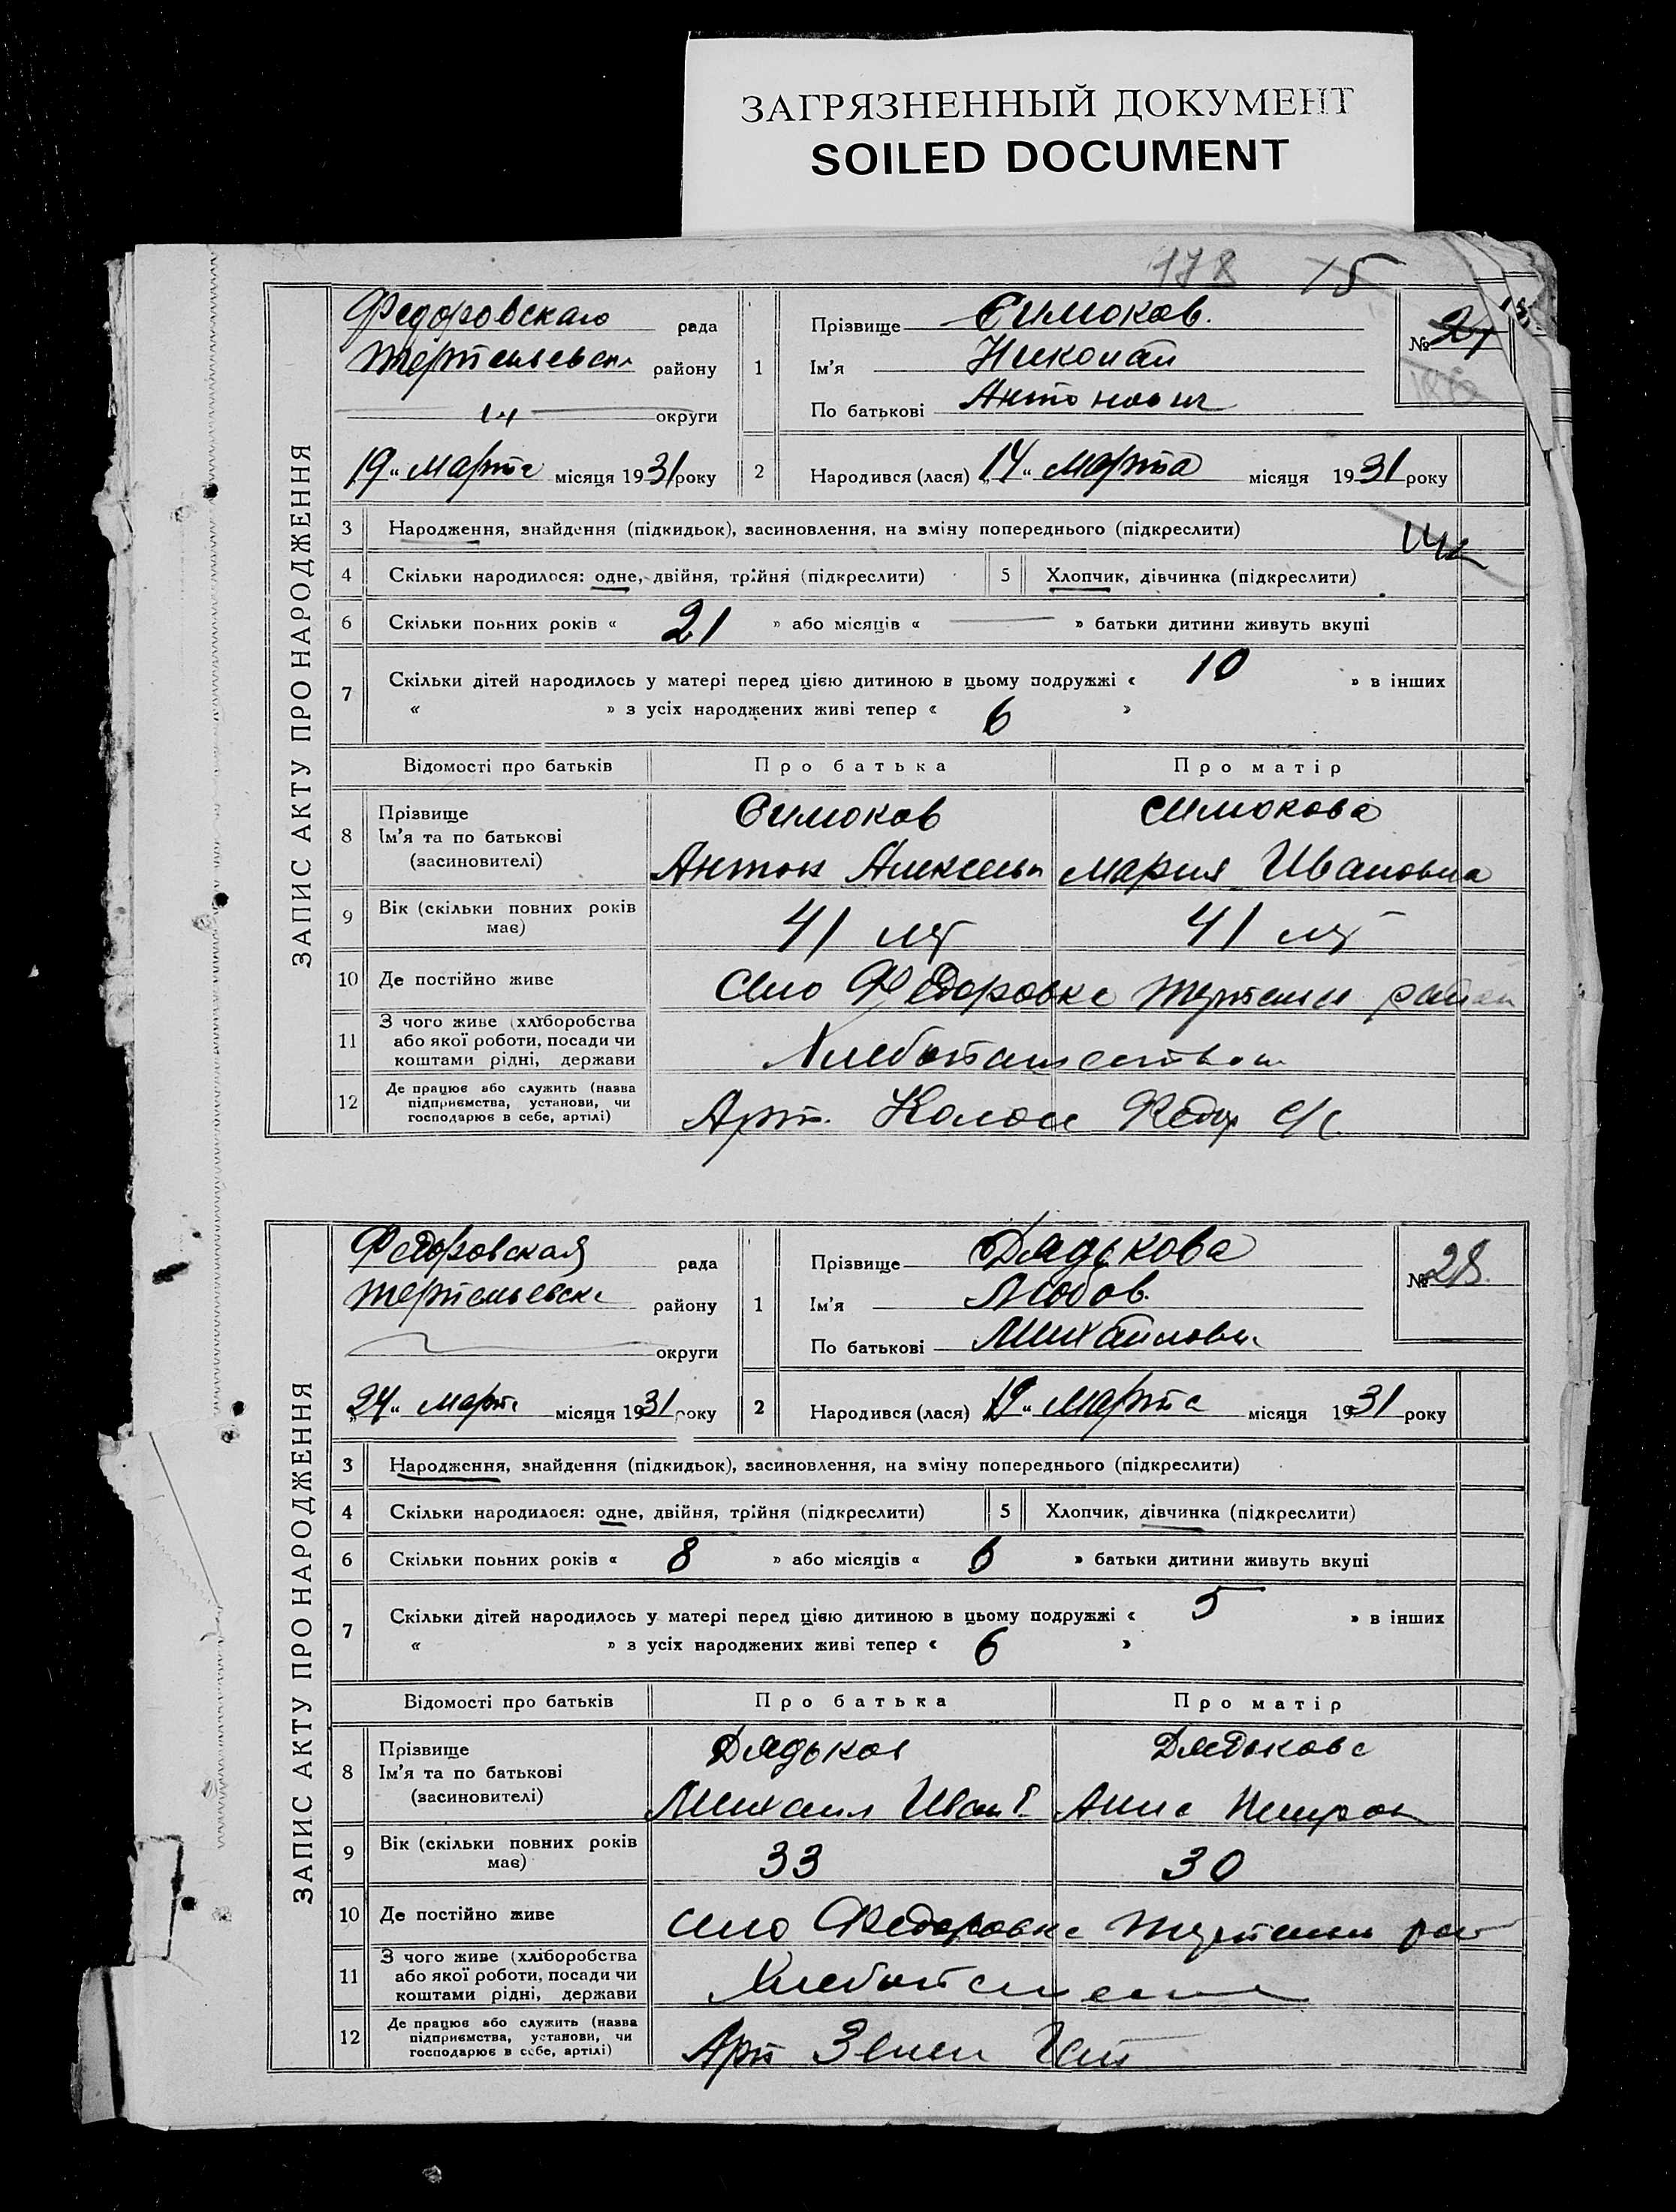 ЗАГРЯЗНЕННЫЙ ДОКУМЕНТ
SOILED DOCUMENT
178 15
ЗАПИС АКТУ ПРО НАРОДЖЕННЯ
Федоровскаго рада
района району
округи
19 " Марта місяця 1931 року
1 Прізвище Симоков.
Ім'я Николай
По батькові Антонович
№ 27
2 Народився (лася) „14" марта місяця 1931 року
3 Народження, знайдення (підкидьок), засиновлення, на зміну попереднього (підкреслити)
4 Скільки народилося: одне, двійня, трійня (підкреслити) 5 Хлопчик, дівчинка (підкреслити)
6 Скільки повних років « 21 » або місяців « — » батьки дитини живуть вкупі
7 Скільки дітей народилось у матері перед цією дитиною в цьому подружжі « 10 » в інших
« » з усіх народжених живі тепер « 6 »
Відомості про батьків Про батька Про матір
8 Прізвище Ім'я та по батькові (засиновителі)
Симоков Симокова
Антон Алексеев Мария Ивановна
9 Вік (скільки повних років має) 41 лет 41 лет
10 Де постійно живе Село Федоровка район
11 З чого живе (хліборобства або якої роботи, посади чи коштами рідні, держави
Хлебопашеством
12 Де працює або служить (назва підприємства, установи, чи господарює в себе, артілі)
Арт. Колос Федор с/с
ЗАПИС АКТУ ПРО НАРОДЖЕННЯ
Федоровская рада
району
округи
„24" марта місяця 1931 року
1 Прізвище Дядькова
Ім'я Любов.
По батькові Михайловн
№ 28.
2 Народився (лася) 19" марта місяця 1931 року
3 Народження, знайдення (підкидьок), засиновлення, на зміну попереднього (підкреслити)
4 Скільки народилося: одне, двійня, трійня (підкреслити) 5 Хлопчик, дівчинка (підкреслити)
6 Скільки повних років « 8 » або місяців « 6 » батьки дитини живуть вкупі
7 Скільки дітей народилось у матері перед цією дитиною в цьому подружжі « 5 » в інших
« » з усіх народжених живі тепер « 6 »
Відомості про батьків Про батька Про матір
8 Прізвище Ім'я та по батькові (засиновителі)
Дядьков Дядькова
Михаил Иван Анна
9 Вік (скільки повних років має) 33 30
10 Де постійно живе село Федоровка
11 З чого живе (хліборобства або якої роботи, посади чи коштами рідні, держави
12 Де працює або служить (назва підприємства, установи, чи господарює в себе, артілі)
Арт